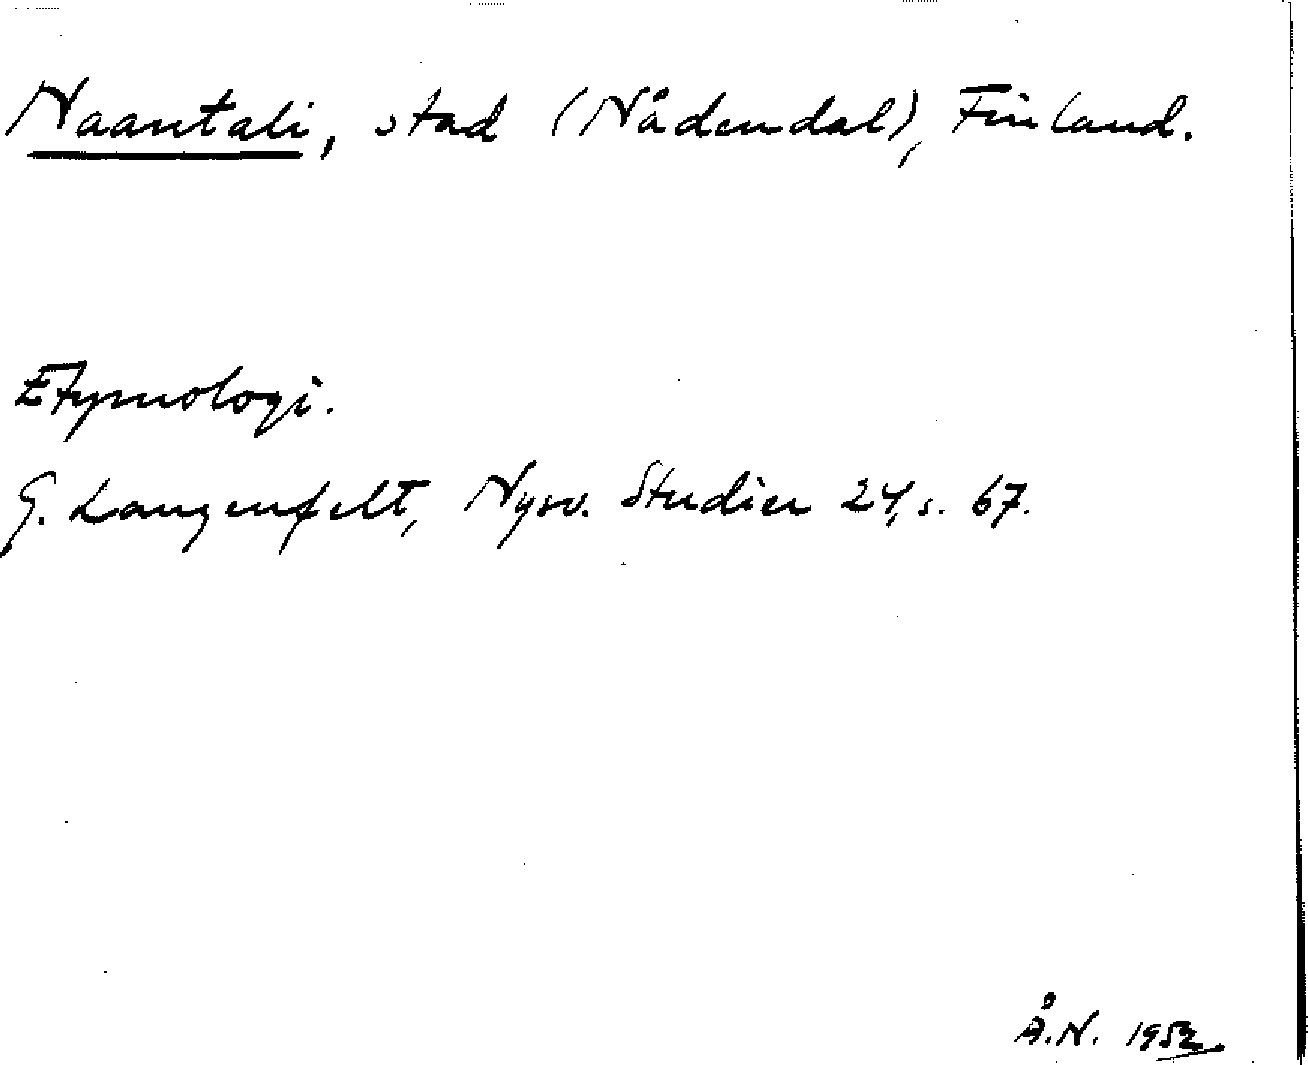 Naantali, stad (Nådendal), Finland.
Etymologi.
G. Langenfelt, Nysv. Studier 24, s. 67.
Å.N. 1952.